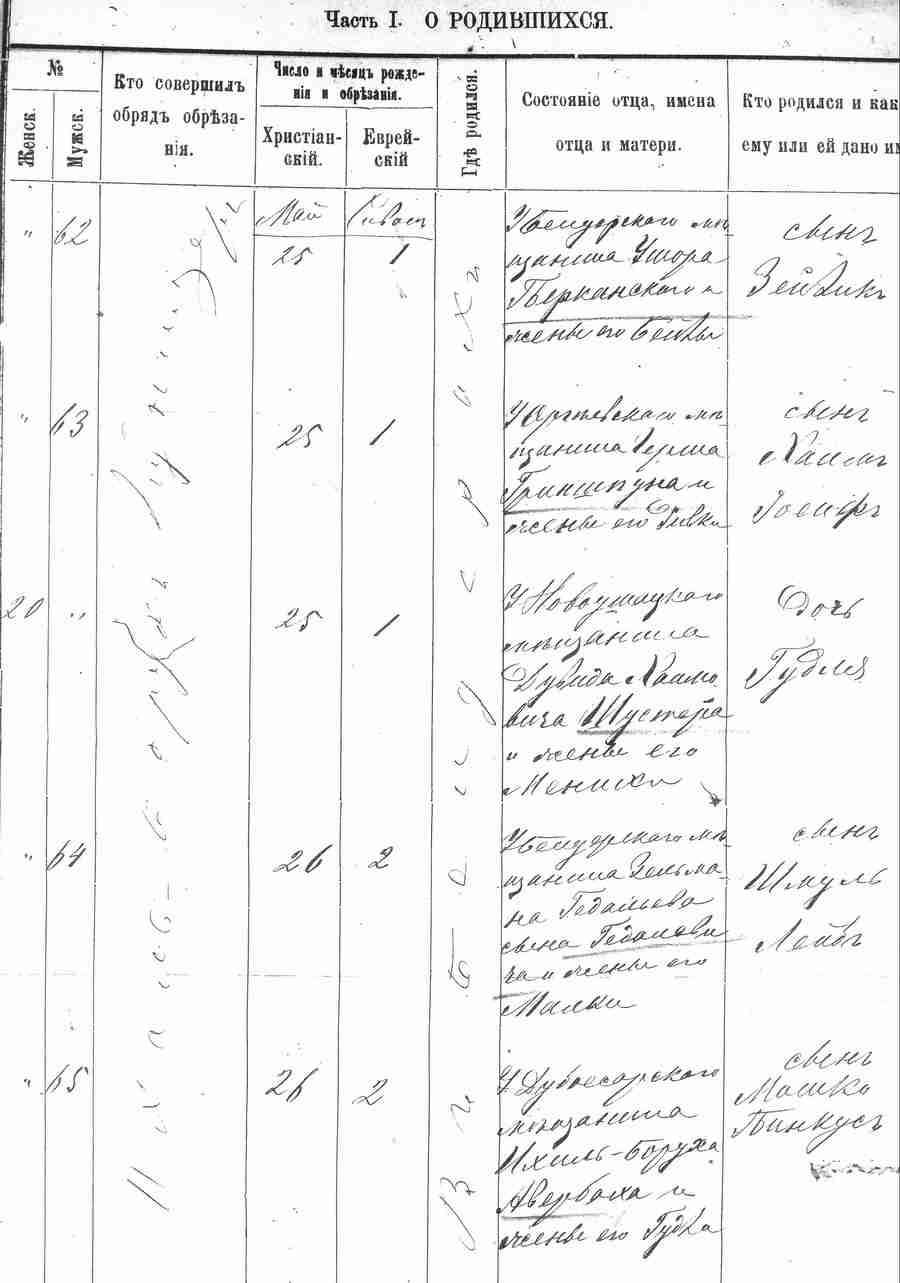 Часть I. О РОДИВШИХСЯ.
№
Женск.
Мужск.
Кто совершилъ
обрядъ обрѣза-
нія.
Число и мѣсяцъ рожде-
нія и обрѣзанія.
Христіан-
скій.
Еврей-
скій
Гдѣ родился.
Состояніе отца, имена
отца и матери.
Кто родился и как
ему или ей дано им
Май
"
62
25
1
У Бендерского мѣ-
щанина
Берканского и
жены его Бейлы
сынъ
Зейликъ
"
63
25
1
У Оргѣевского мѣ-
щанина Герша
Гриншпуна и
жены его Ривки
сынъ
Хаимъ
Іосифъ
20
"
25
1
У Новоушицкого
мѣщанина
Дувида Хаимо
вича Шустера
и жены его
Менихи
Дочь
Гудля
"
64
26
2
У Бендерского мѣ-
щанина Зельма-
на Гедальева
сына Гедалови
ча и жены его
Малки
сынъ
Шмуль
Лейбъ
"
65
26
2
У Дубоссарского
мѣщанина
Ихиль-Боруха
Авербаха и
жены его
сынъ
Мошко
Пинкусъ
В ъ Б е н д е р а х ъ